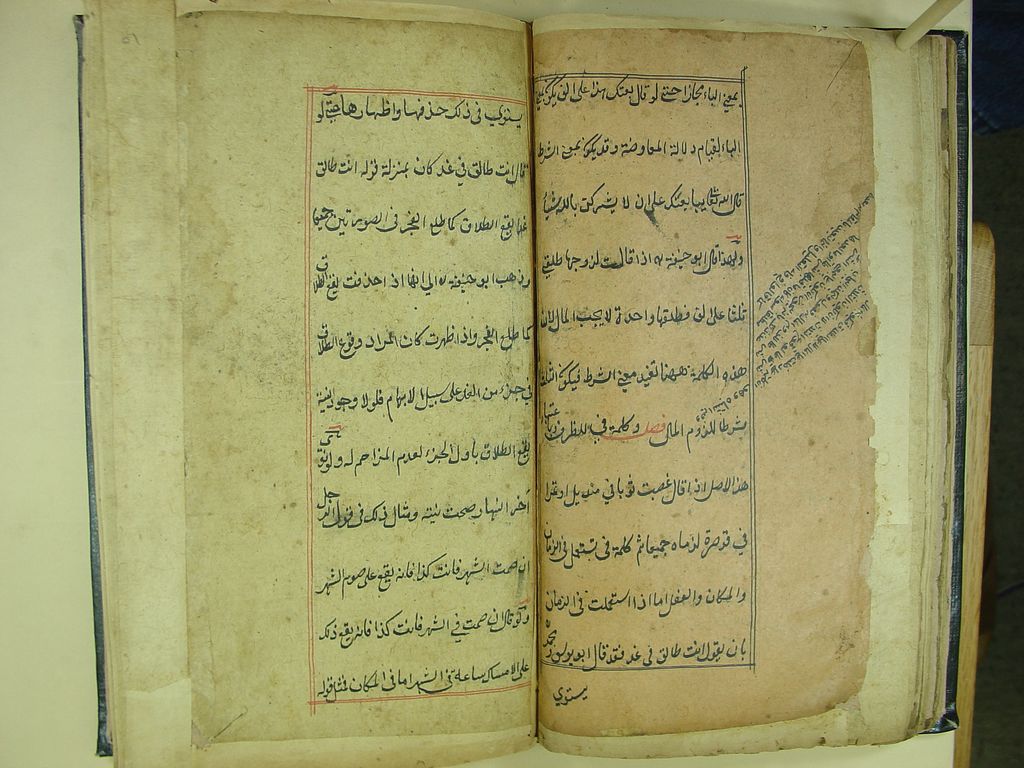 بمعنى الباء مجازا حتى لو قال بعتك هذا على الف يكون على بمعنى
الباء لقيام دلالة المعاوضة وقد يكون بمعنى الشرط
قال الله تعالى يبايعنك على ان لا يشركن بالله شيئا
ولهذا قال ابو حنيفة ره اذا قالت لزوجها طلقني
ثلثا على الف وطلقها واحدة لا يجب المال لان
هذه الكلمة ههنا تفيد معنى الشرط فيكون الثلث
شرطا للزوم المال فصل وكلمة في للظرف وباعتبار
هذا الاصل اذا قال غصبت ثوبا في منديل او تمرا
في قوصرة لزماه جميعا ثم كلمة في تستعمل في الزمان
والمكان والفعل اما اذا استعملت في الزمان
بان يقول انت طالق في غد فقد قال ابو يوسف ومحمد
يستوي
يستوي في ذلك حذفها واظهارها حتى لو
قال انت طالق في غد كان بمنزلة قوله انت طالق
غدا يقع الطلاق كما طلع الفجر في الصورتين جميعا
وذهب ابو حنيفة ره الى انها اذا حذفت يقع الطلاق
كما طلع الفجر واذا ظهرت كان المراد وقوع الطلاق
في جزء من الغد على سبيل الابهام فلولا وجود النية
يقع الطلاق باول الجزء لعدم المزاحم له ولو نوى
آخر النهار صحت نيته ومثال ذلك في قول الرجل
ان صمت الشهر فانت كذا فانه يقع على صوم الشهر
ولو قال ان صمت في الشهر فانت كذا فانه يقع ذلك
على الامساك ساعة في الشهر اما في المكان فمثل قوله